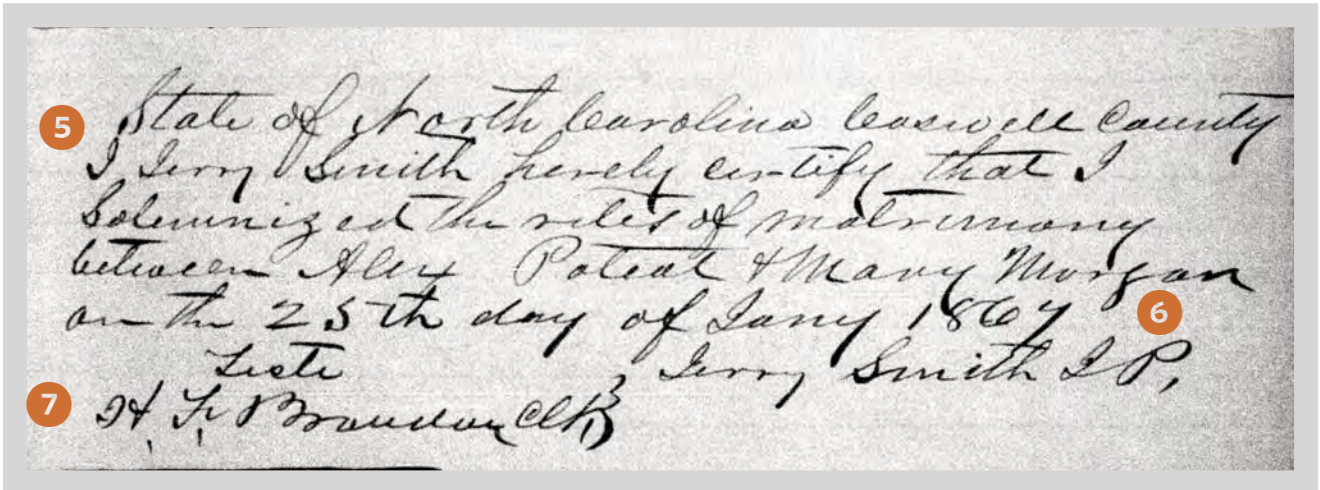 5 State of North Carolina Caswell County
I Jerry Smith hereby certify that I
Solemnized the rites of matrimony
between Alex Poteat & Mary Morgan
on the 25th day of Jany 1867 6
Teste Jerry Smith J P,
7 H. F. Brandon Clk